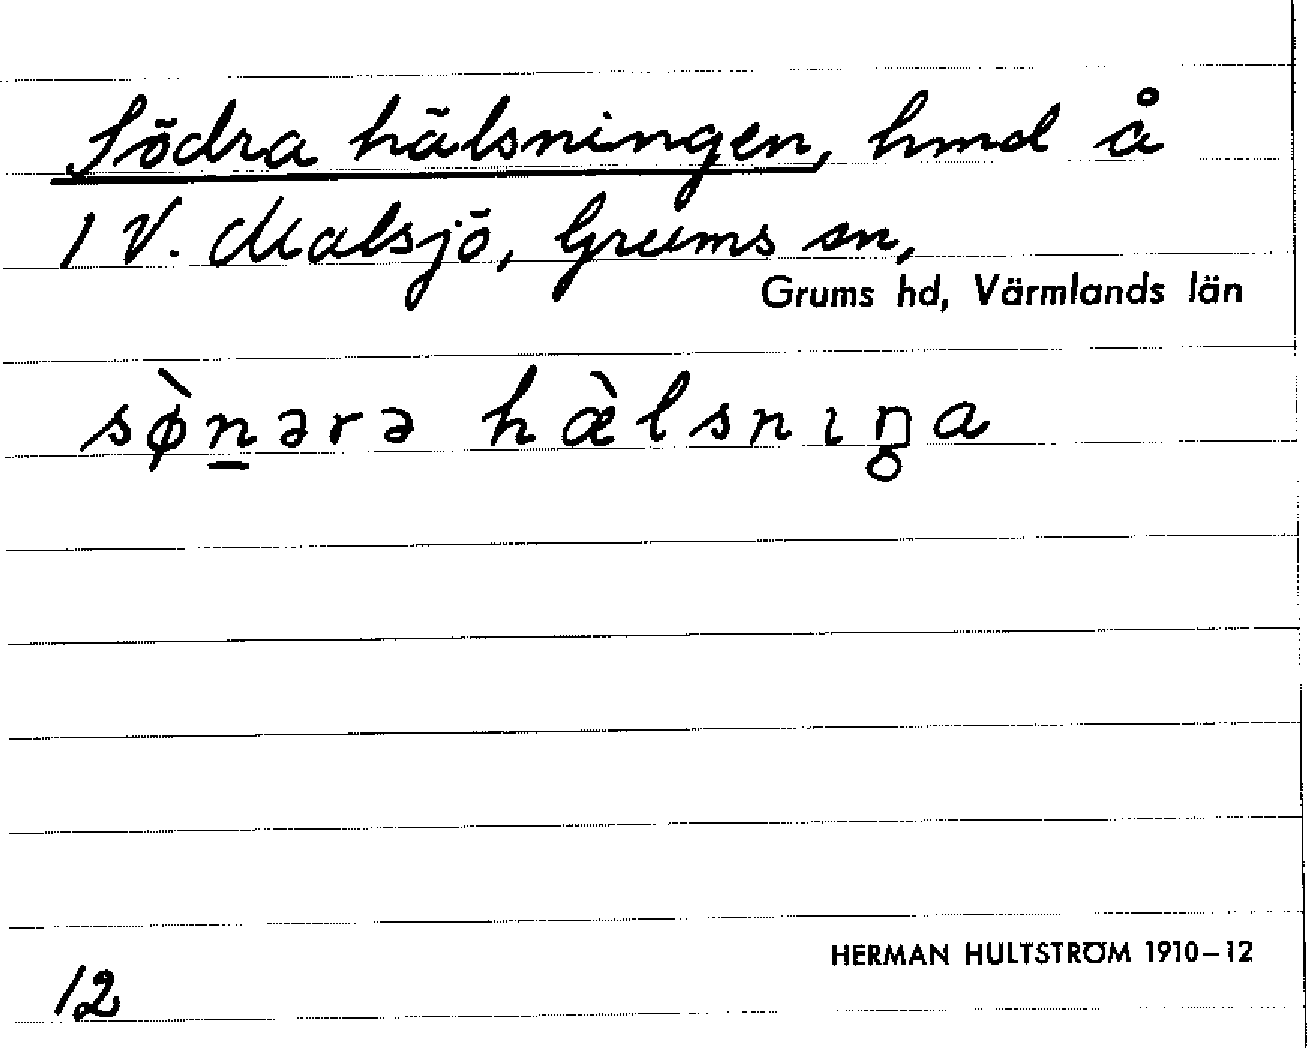 Södra hälsningen, hmd å
1 V. Malsjö, Grums sn,
Grums hd, Värmlands län
sø̀n̲ərə hæ̀lsnıŋ̥a
12
HERMAN HULTSTRÖM 1910–12